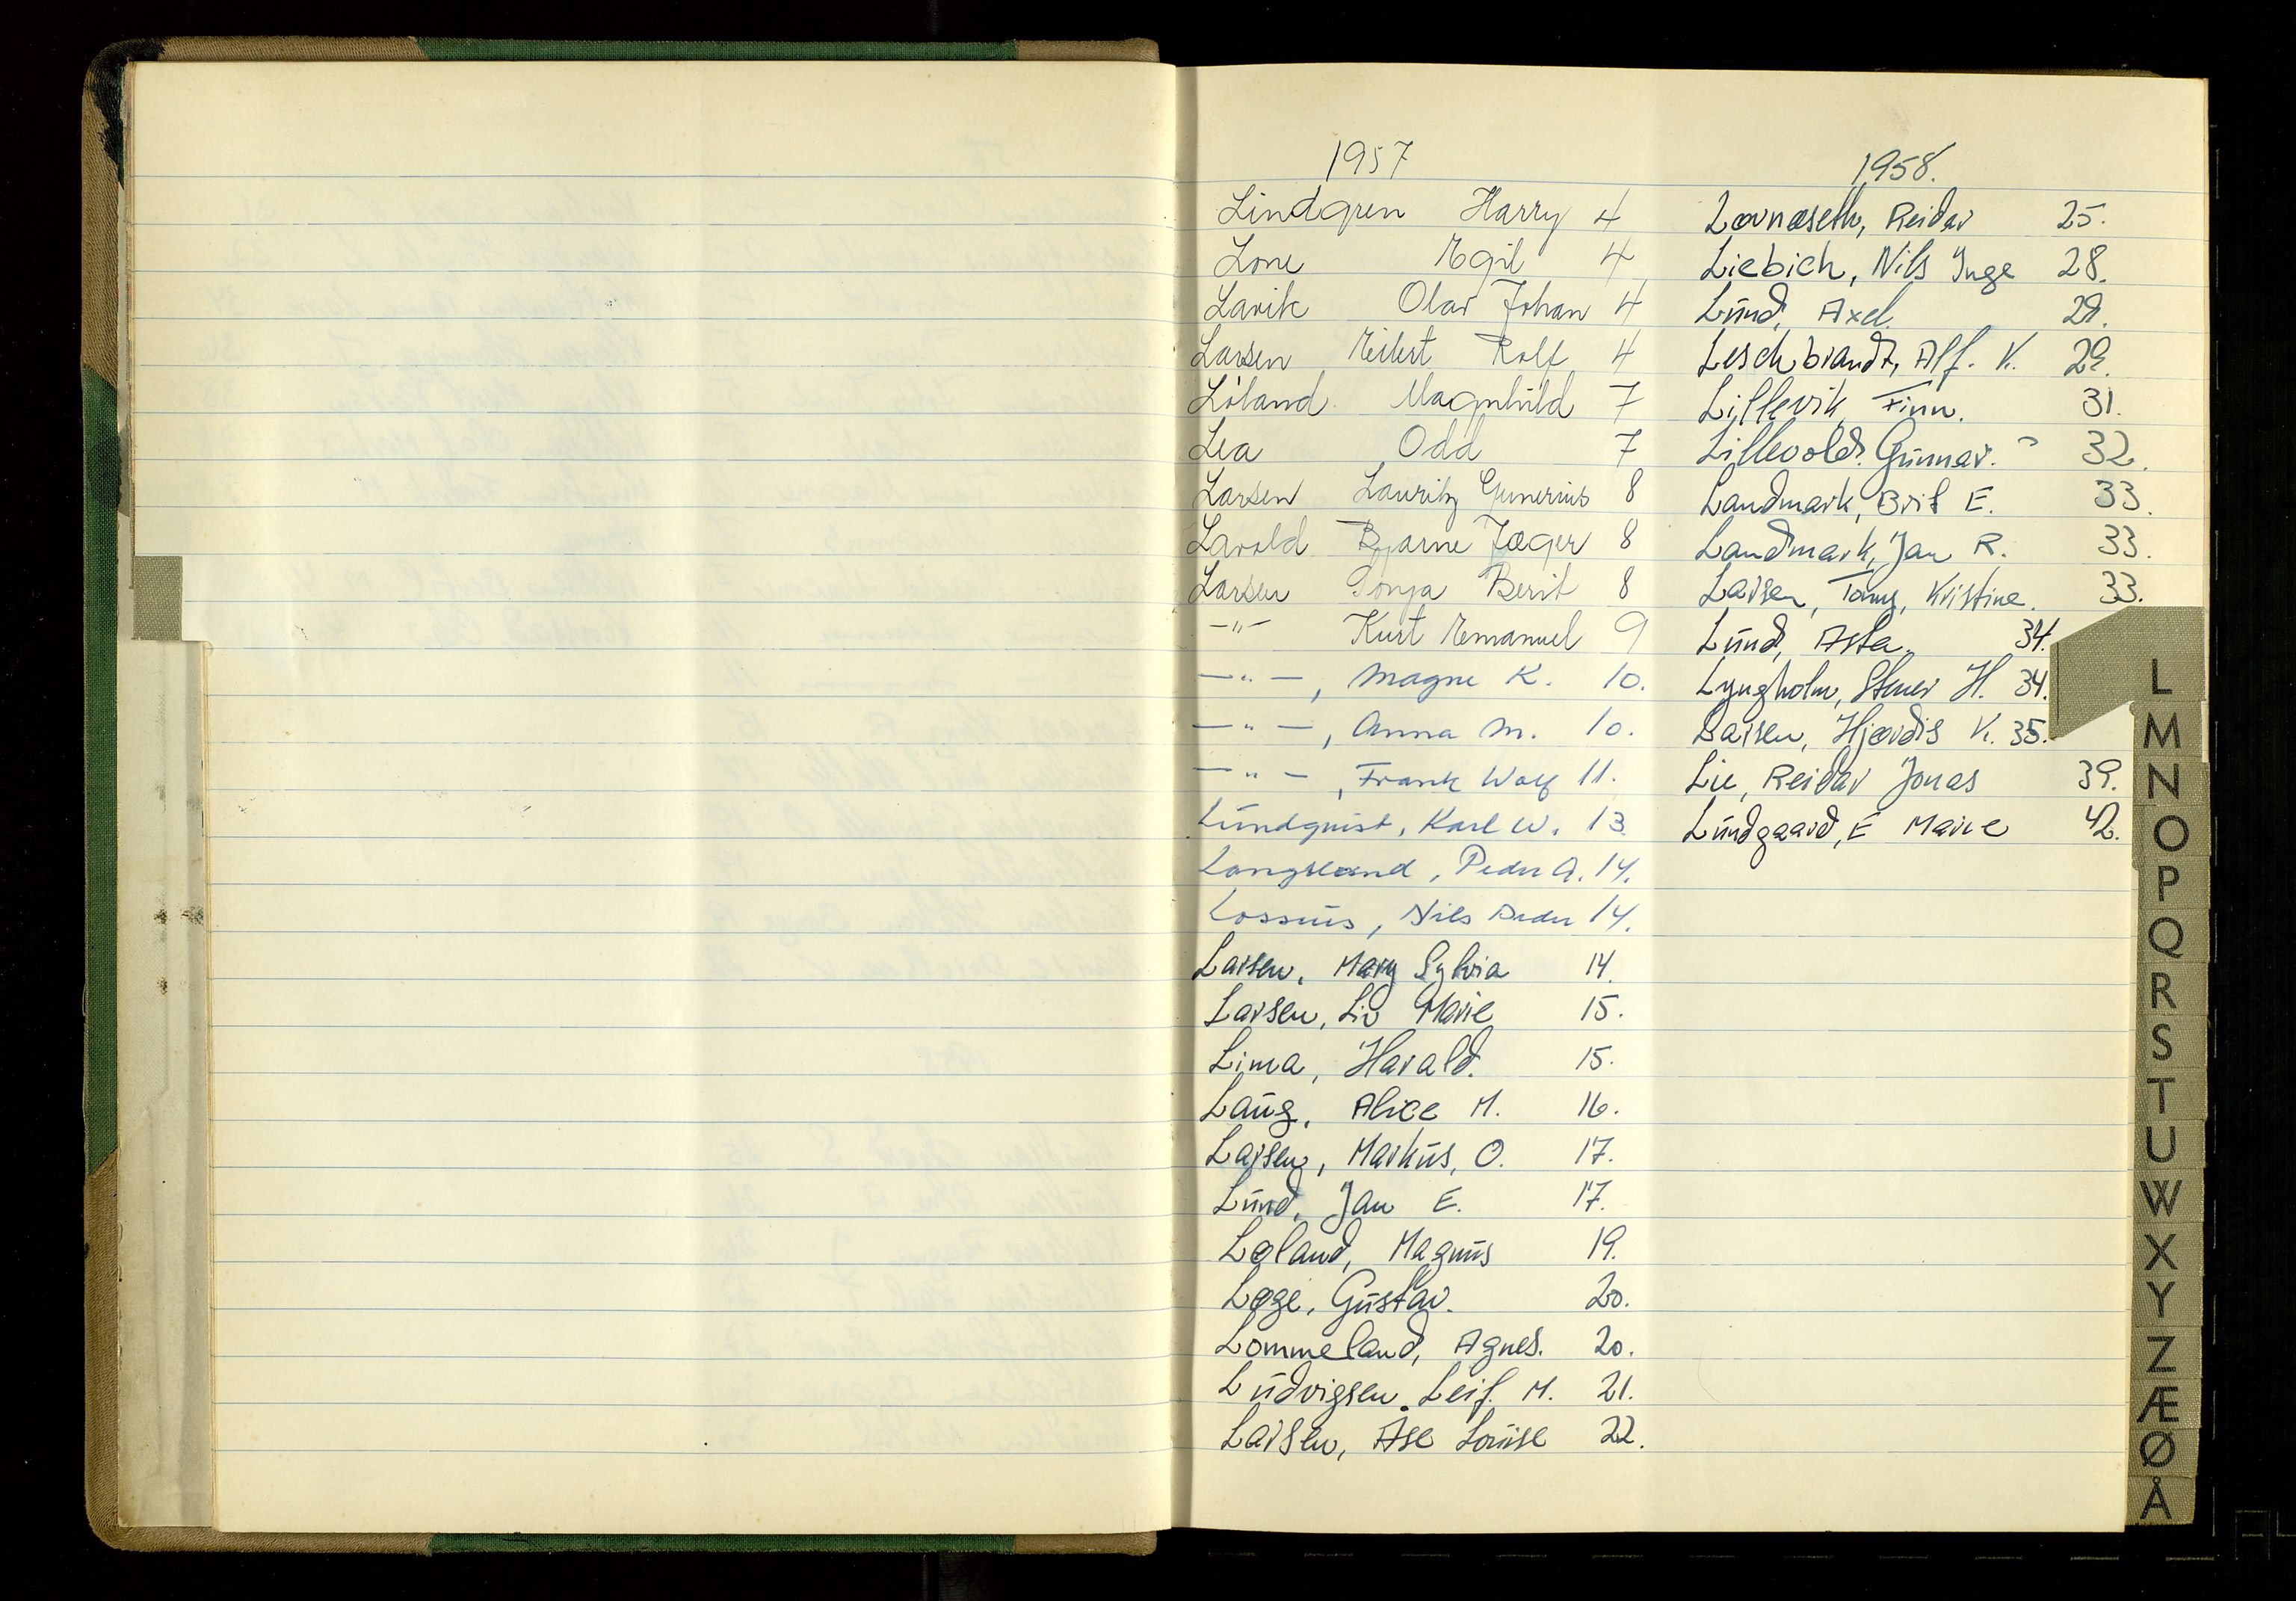 1957
Lindgren Harry 4
Lone Egil 4
Larik Olav Johan 4
Larsen Meilert Rolf 4
Löland Magnhild 7
Lea Odd 7
Larsen Lauritz Gunerius 8
Larold Bjarne Jæger 8
Larsen Sonja Berit 8
-"- Kurt Emanuel 9
- " -, Magne K. 10.
- " -, Anna M. 10.
- " -, Frank Wolf 11.
Lündquist, Karl W. 13.
Langeland, Peder A. 14.
Lossüs, Nils Peder 14.
Larsen, Mary Sylvia 14.
Larsen, Liv Marie 15.
Lima, Harald. 15.
Laüg, Alice M. 16.
Larsen, Markús, O. 17.
Lünd, Jan E. 17.
Løland, Magnüs 19.
Løge, Gústav. 20.
Lommeland, Agnes. 20.
Lüdvigsen. Leif. M. 21.
Larsen, Åse Loüise 22.
1958.
Reidar 25.
Liebich, Nils Inge 28.
Lünd, Axel. 29.
Leschbrandt, Alf. K. 29.
Lillevik, Finn. 31.
Lillevold. Günnar. 32.
Landmark, Brit E. 33.
Landmark, Jan R. 33.
Larsen, Kristine. 33.
Lünd, Asta. 34.
Lyngholm, H. 34.
Larsen, Hjørdis K. 35.
Lie, Reidar Jonas 39.
Lündgaard, E Marie 42.
L
M
N
O
P
Q
R
S
T
U
W
X
Y
Z
Æ
Ø
Å